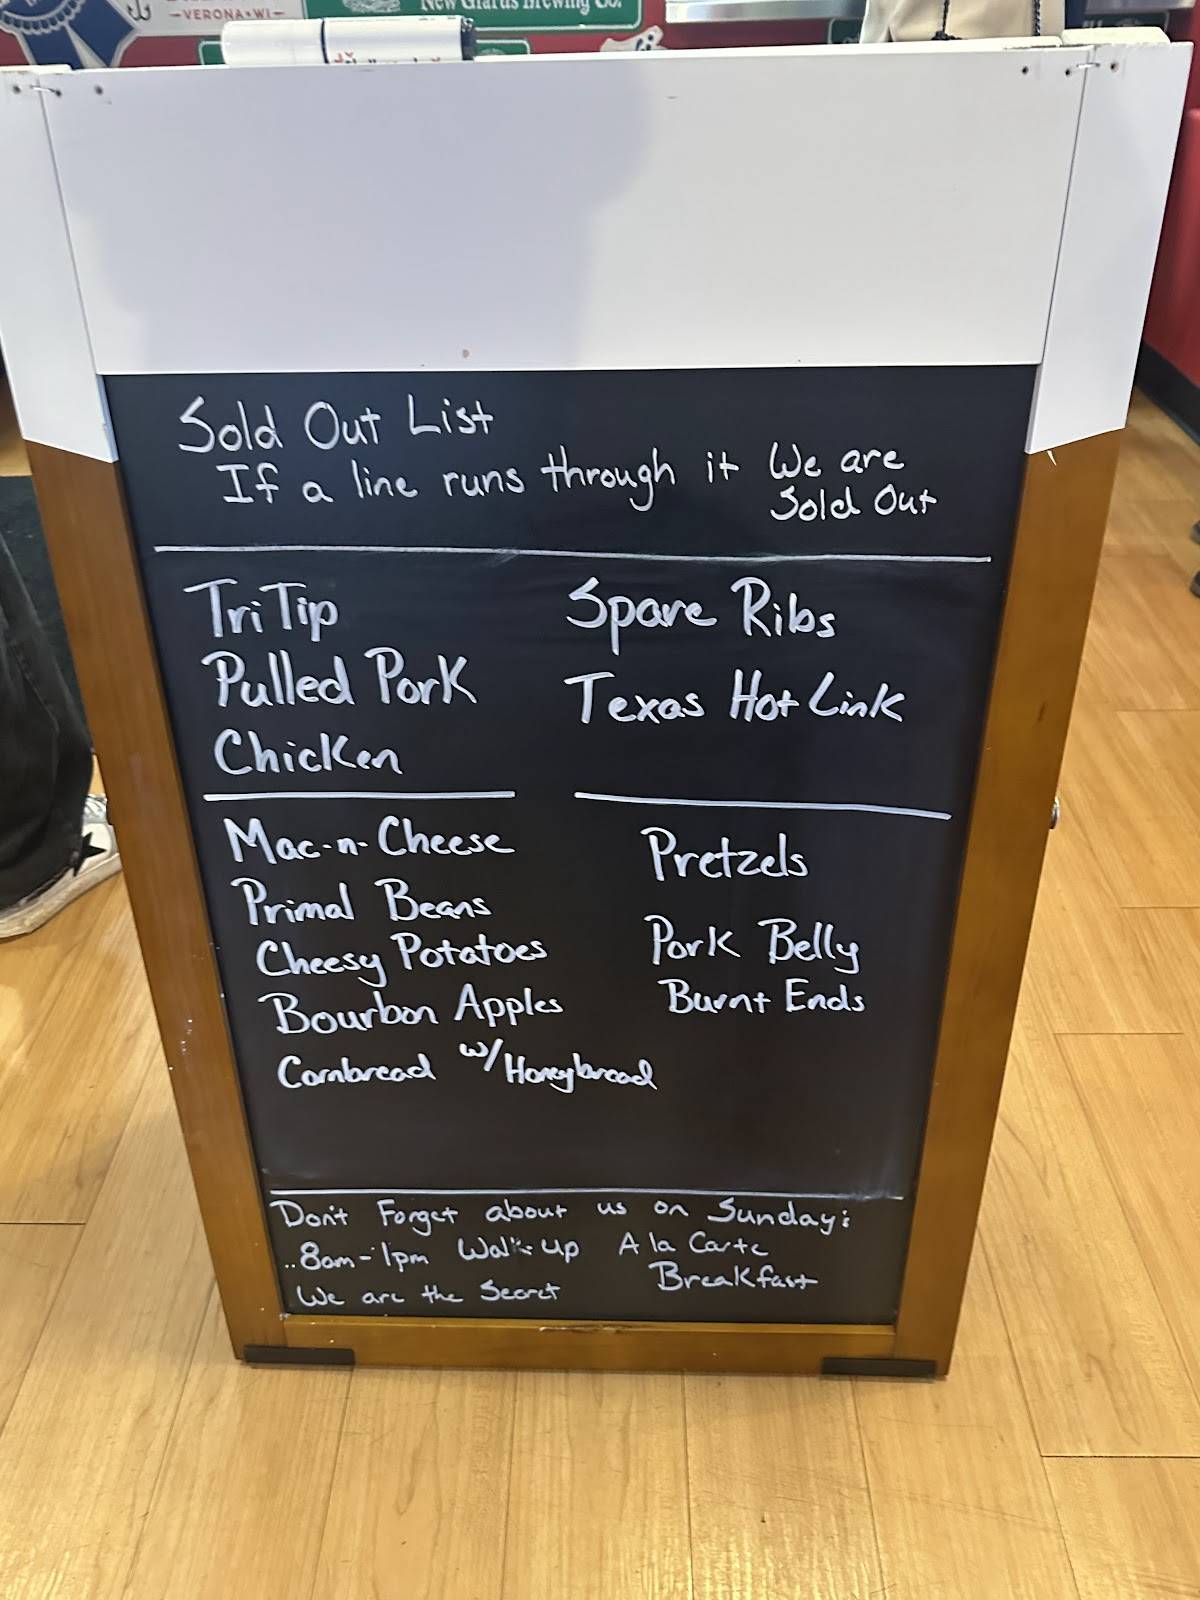 VERONA•WI
New Glarus Brewing Co.
Sold Out List
If a line runs through it We are
Sold Out
Tri Tip
Pulled Pork
Chicken
Spare Ribs
Texas Hot Link
Mac-n-Cheese
Primal Beans
Cheesy Potatoes
Bourbon Apples
Cornbread w/Honeybread
Pretzels
Pork Belly
Burnt Ends
Don't Forget about us on Sunday:
..8am-1pm Walk-up A la Carte
Breakfast
We are the Secret